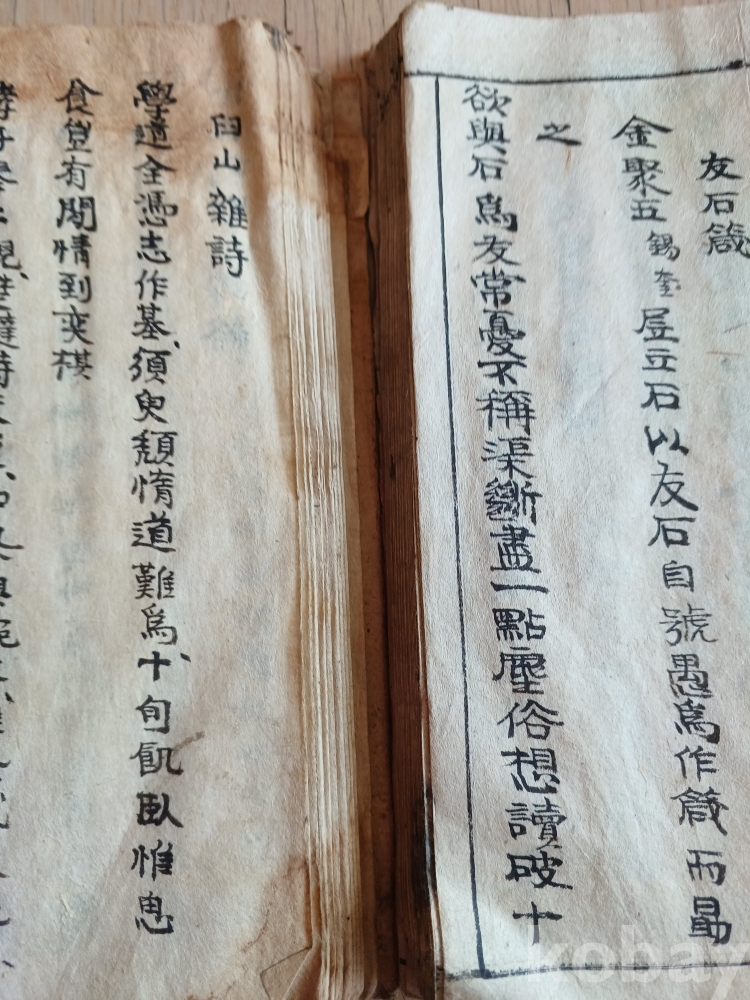 友石箴
金聚五錫奎居立石以友石自號愚爲作箴而勗
之
欲與石爲友常憂不稱渠斷盡一點塵俗想讀破十
臼山雜詩
學道全憑志作基須臾頹惰道難爲十旬飢臥惟思
食豈有閒情到奕棋
kobay